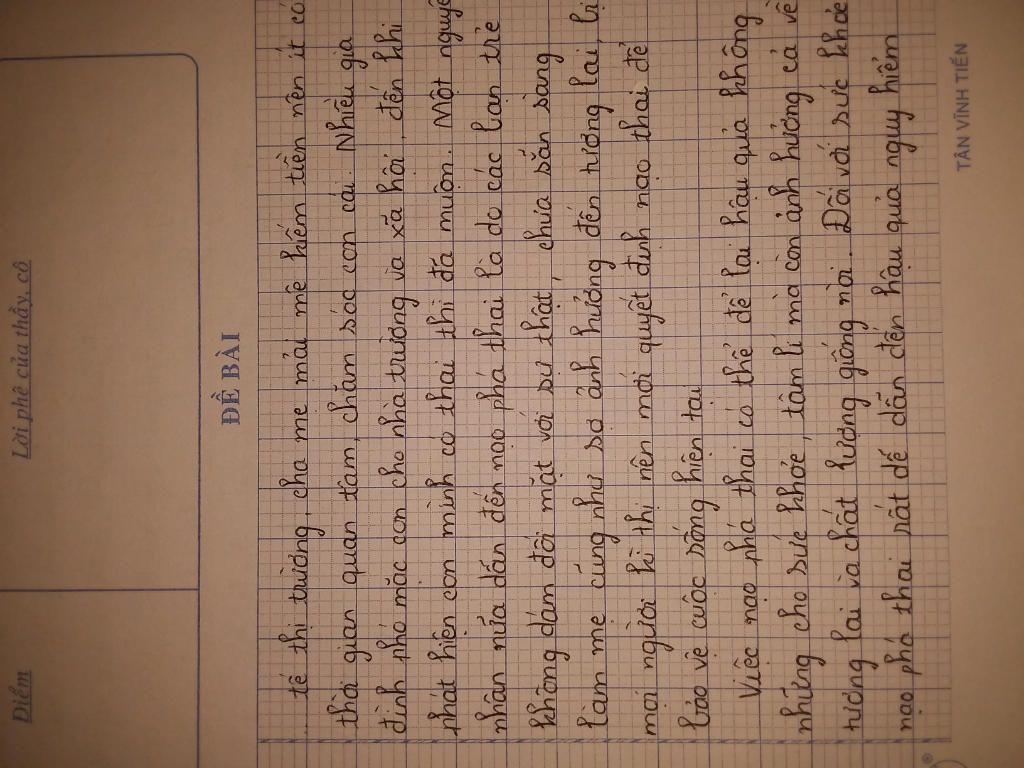 Điểm
Lời phê của thầy, cô
ĐỀ BÀI
tế thị trường, cha mẹ mải mê kiếm tiền nên ít có
thời gian quan tâm, chăm sóc con cái. Nhiều gia
đình phó mặc con cho nhà trường và xã hội, đến khi
phát hiện con mình có thai thì đã muộn. Một nguyê
nhân nữa dẫn đến nạo phá thai là do các bạn trẻ
không dám đối mặt với sự thật, chưa sẵn sàng
làm mẹ cũng như sợ ảnh hưởng đến tương lai, bị
mọi người kì thị nên mới quyết định nạo thai để
bảo vệ cuộc sống hiện tại
Việc nạo phá thai có thể để lại hậu quả không
những cho sức khỏe, tâm lí mà còn ảnh hưởng cả về
tương lai và chất lượng giống nòi. Đối với sức khỏe
nạo phá thai rất dễ dẫn đến hậu quả nguy hiểm
TÂN VĨNH TIẾN